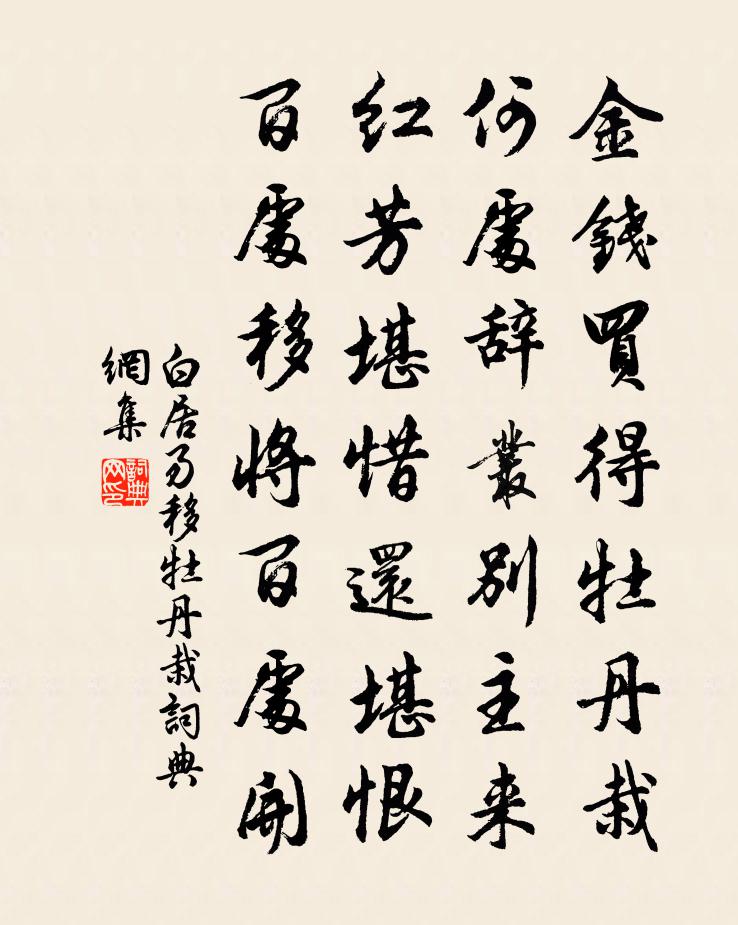 金錢買得牡丹栽
何處辞叢別主来
紅芳堪惜還堪恨
百處移將百處開
白居易移牡丹栽詞典
網集
詞典
网印